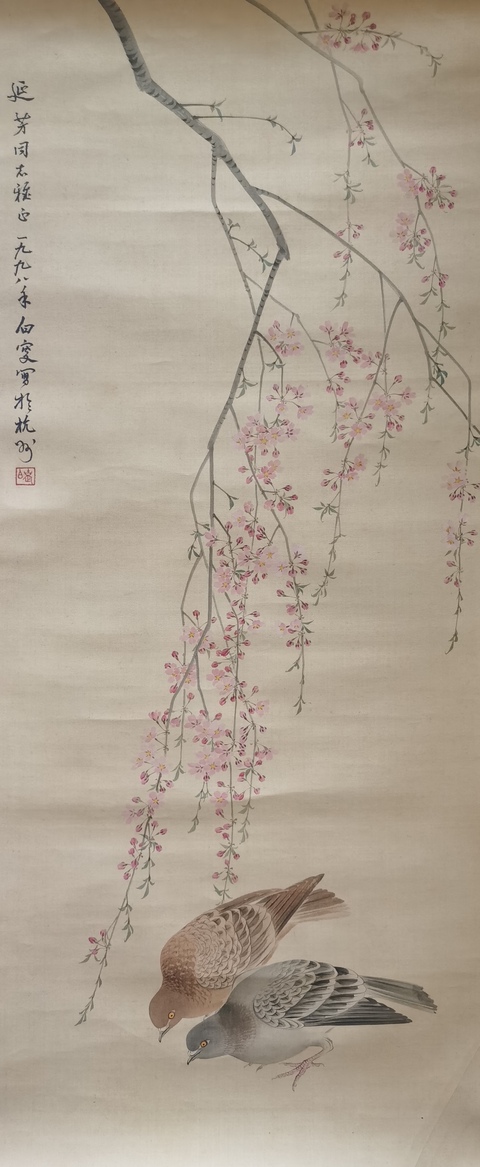 延芳同志雅正一九九八年伯雯写於杭州